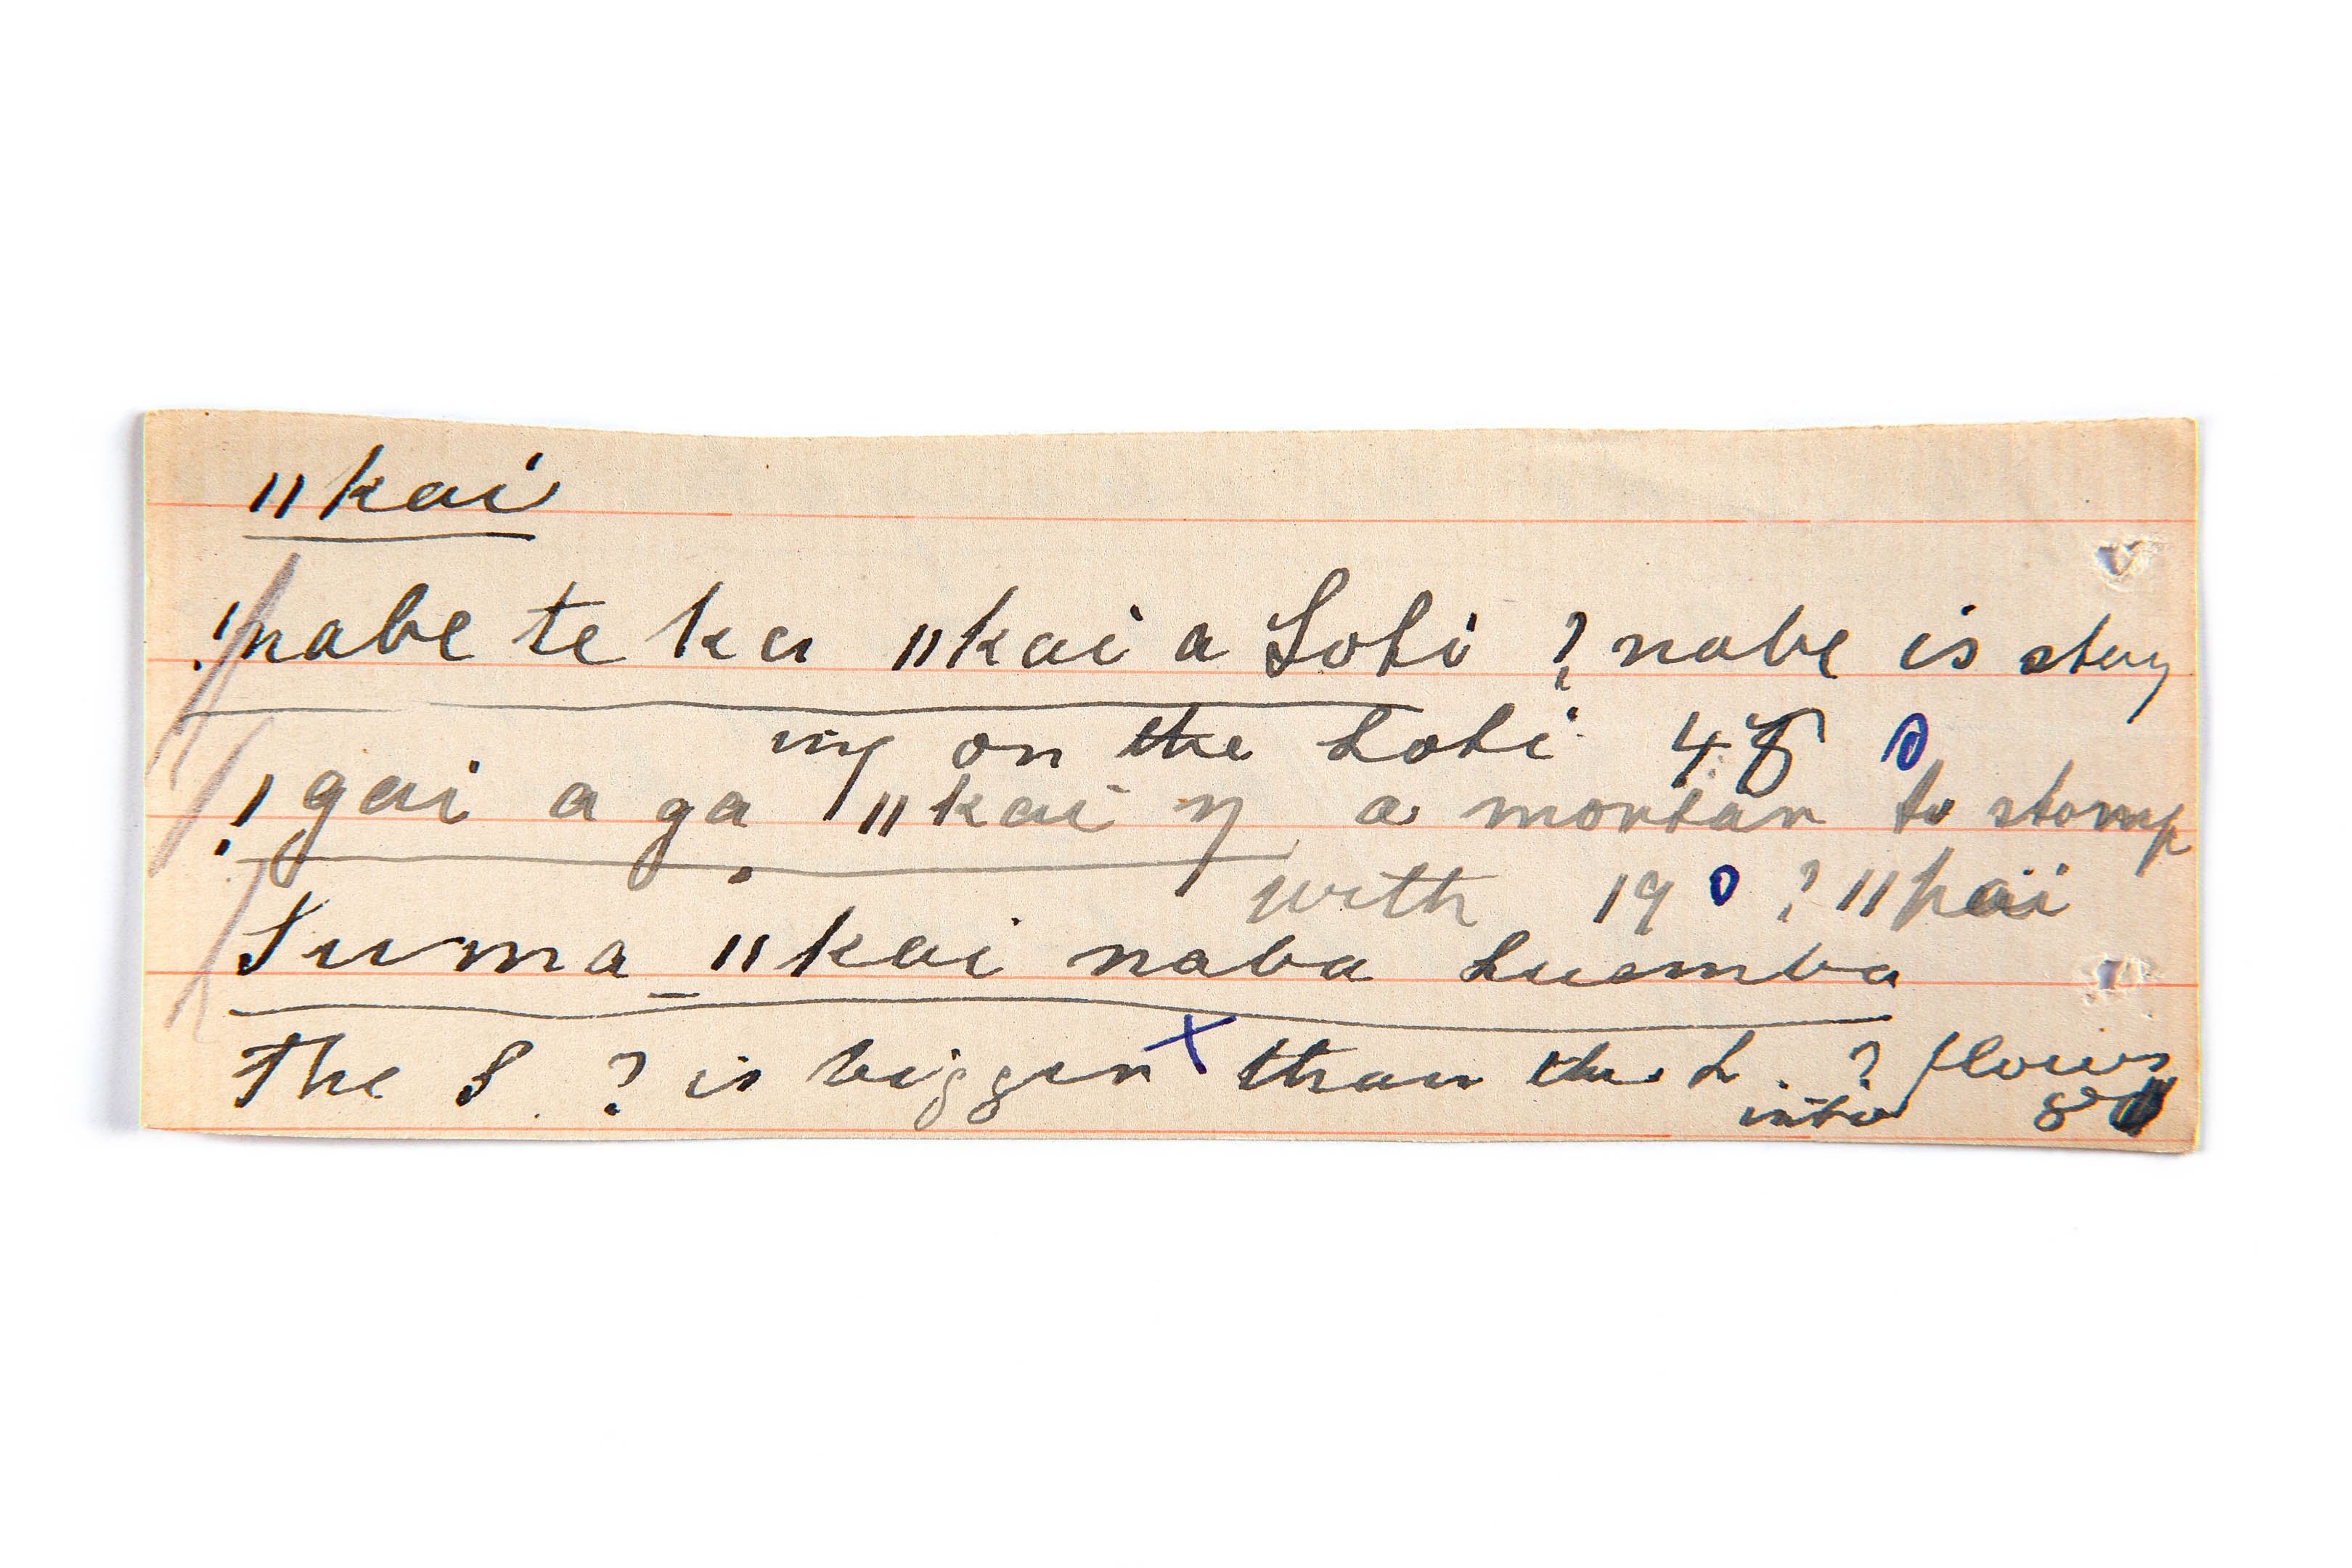 "kai
!nabe te ka "kai a Lobi ? nabe is stay
ing on the Lobi 48
! gai a ga "kai ŋ a mortar to stomp
with 19 ? "kai
Suma "kai naba Luemba
The S. ? is bigger x than the L. ? flows
into